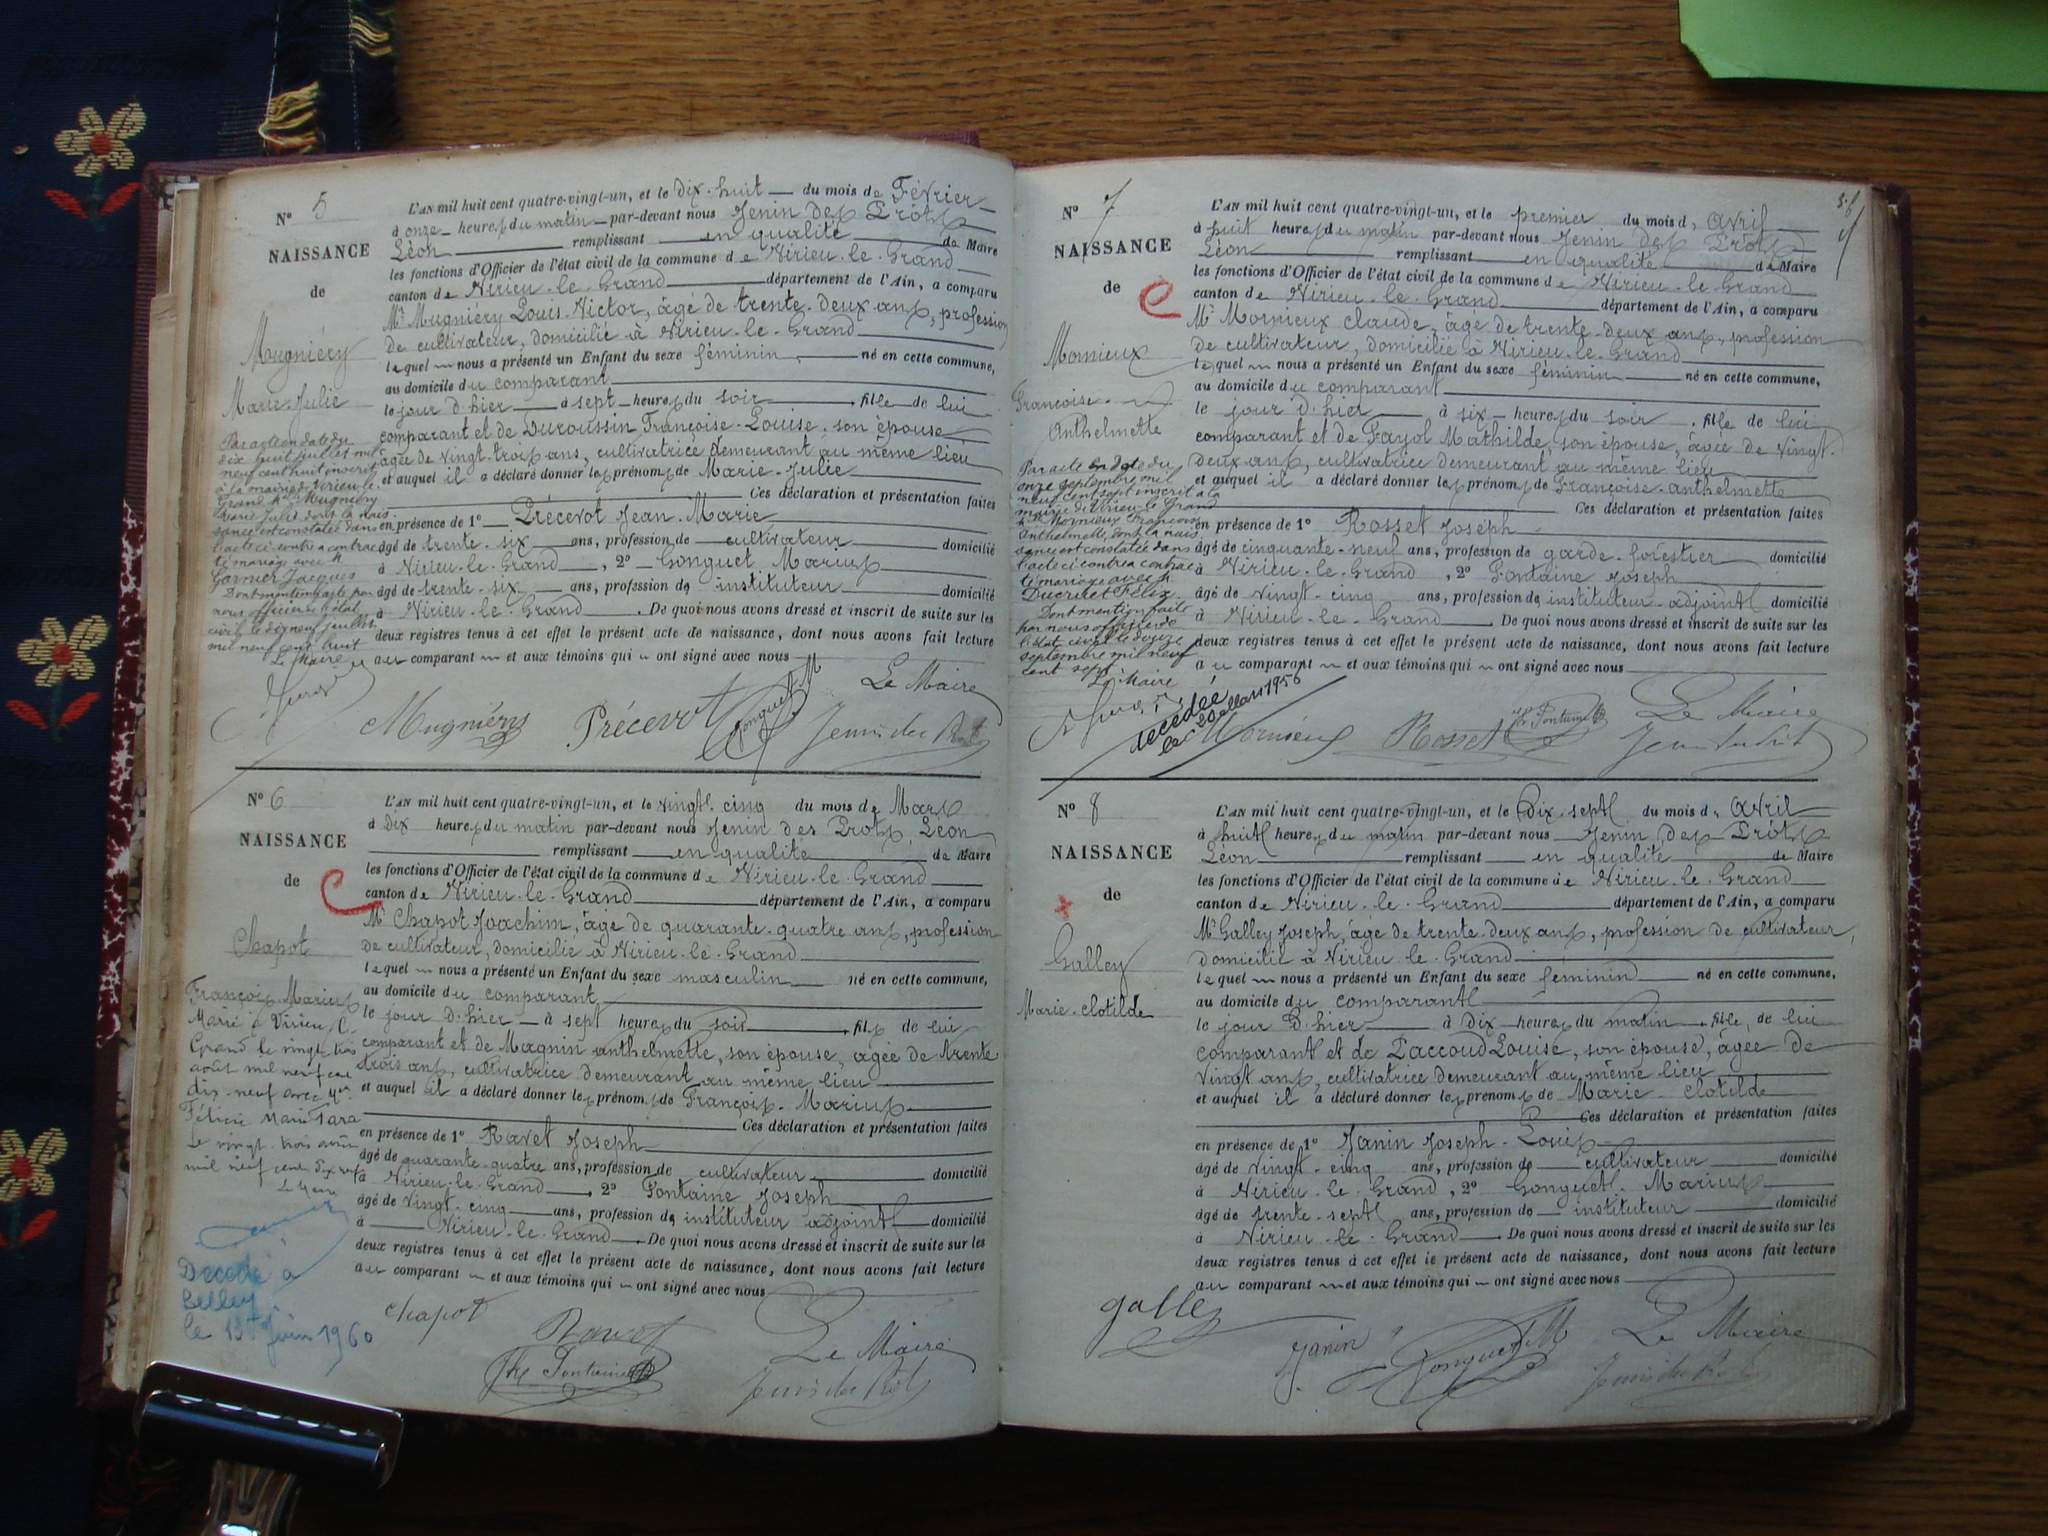 N° 5
NAISSANCE
de
Mugniéry
Marie-Julie
Par acte en date du
dix huit juillet mil
neuf cent huit inscrit
à la mairie de Virieu le
Grand Mugniéry
Marie Julie dont la nais
sance est constatée dans
l'acte ci contre a contrac
té mariage avec M
Garnier Jacques
Dont mention faite par
nous officier de l'état
civil le dix neuf juillet
mil neuf cent huit
Le Maire
L'AN mil huit cent quatre-vingt-un, et le dix-huit du mois de Février
à onze heures du matin par-devant nous Jenin des Prots
Léon remplissant en qualité de Maire
les fonctions d'Officier de l'état civil de la commune de Virieu-le-Grand
canton de Virieu-le-Grand département de l'Ain, a comparu
Mr Mugniéry Louis-Victor, âgé de trente-deux ans, profession
de cultivateur, domicilié à Virieu-le-Grand
lequel nous a présenté un Enfant du sexe féminin, né en cette commune,
au domicile du comparant
le jour d'hier à sept heures du soir fille de lui
comparant et de Duroussin Françoise-Louise, son épouse
âgée de vingt-trois ans, cultivatrice demeurant au même lieu
et auquel il a déclaré donner les prénoms de Marie-Julie
Ces déclaration et présentation faites
en présence de 1° Précevot Jean-Marie
âgé de trente-six ans, profession de cultivateur domicilié
à Virieu-le-Grand, 2° Gonguet Marius
âgé de trente-six ans, profession de instituteur domicilié
à Virieu-le-Grand. De quoi nous avons dressé et inscrit de suite sur les
deux registres tenus à cet effet le présent acte de naissance, dont nous avons fait lecture
au comparant et aux témoins qui ont signé avec nous
Mugniéry Précevot Gonguet M Le Maire
Jenin des Prots
N° 6
NAISSANCE
de
Chapot
François Marius
Marié à Virieu le
Grand le vingt trois
août mil neuf cent
dix-neuf avec
Félicie Marie
Le vingt-trois août
mil neuf cent dix neuf
Le Maire
Décédé à
Belley
le 13 Juin 1960
L'AN mil huit cent quatre-vingt-un, et le vingt-cinq du mois de Mars
à dix heures du matin par-devant nous Jenin des Prots Léon
remplissant en qualité de Maire
les fonctions d'Officier de l'état civil de la commune de Virieu-le-Grand
canton de Virieu-le-Grand département de l'Ain, a comparu
Mr Chapot Joachim, âgé de quarante-quatre ans, profession
de cultivateur, domicilié à Virieu-le-Grand
lequel nous a présenté un Enfant du sexe masculin né en cette commune,
au domicile du comparant
le jour d'hier à sept heures du soir fils de lui
comparant et de Magnin anthelmette, son épouse, âgée de trente
trois ans, cultivatrice demeurant au même lieu
et auquel il a déclaré donner les prénoms de François-Marius
Ces déclaration et présentation faites
en présence de 1° Ravet Joseph
âgé de quarante-quatre ans, profession de cultivateur domicilié
à Virieu-le-Grand, 2° Fontaine Joseph
âgé de vingt-cinq ans, profession de instituteur adjoint domicilié
à Virieu-le-Grand. De quoi nous avons dressé et inscrit de suite sur les
deux registres tenus à cet effet le présent acte de naissance, dont nous avons fait lecture
au comparant et aux témoins qui ont signé avec nous
Chapot Ravet Le Maire
Fontaine Jenin des Prots
N° 7
NAISSANCE
de
Mornieux
Françoise-
Anthelmette
Par acte en date du
onze septembre mil
neuf cent sept inscrit à la
mairie de Virieu-le-Grand
Mornieux Françoise
Anthelmette, dont la nais
sance est constatée dans
l'acte ci contre a contrac
té mariage avec M.
Ducruet Félix.
Dont mention faite
par nous officier de
l'état civil le douze
septembre mil neuf
cent sept
Le Maire
décédée
1956
L'AN mil huit cent quatre-vingt-un, et le premier du mois d'Avril
à huit heures du matin par-devant nous Jenin des Prots
Léon remplissant en qualité de Maire
les fonctions d'Officier de l'état civil de la commune de Virieu-le-Grand
canton de Virieu-le-Grand département de l'Ain, a comparu
Mr Mornieux claude, âgé de trente-deux ans, profession
de cultivateur, domicilié à Virieu-le-Grand
lequel nous a présenté un Enfant du sexe féminin né en cette commune,
au domicile du comparant
le jour d'hier, à six heures du soir. fille de lui
comparant et de Fayol Mathilde, son épouse, âgée de vingt-
deux ans, cultivatrice demeurant au même lieu
et auquel il a déclaré donner les prénoms de Françoise-anthelmette
Ces déclaration et présentation faites
en présence de 1° Rosset Joseph
âgé de cinquante-neuf ans, profession de garde-forestier domicilié
à Virieu-le-Grand, 2° Fontaine Joseph
âgé de vingt-cinq ans, profession de instituteur-adjoint domicilié
à Virieu-le-Grand. De quoi nous avons dressé et inscrit de suite sur les
deux registres tenus à cet effet le présent acte de naissance, dont nous avons fait lecture
au comparant et aux témoins qui ont signé avec nous
Mornieux Rosset Fontaine Le Maire
Jenin des Prots
N° 8
NAISSANCE
de
Galley
Marie-clotilde
L'AN mil huit cent quatre-vingt-un, et le Dix-sept du mois d'Avril
à huit heures du matin par-devant nous Jenin des Prots
Léon remplissant en qualité de Maire
les fonctions d'Officier de l'état civil de la commune de Virieu-le-Grand
canton de Virieu-le-Grand département de l'Ain, a comparu
Mr Galley Joseph, âgé de trente-deux ans, profession de cultivateur,
domicilié à Virieu-le-Grand
lequel nous a présenté un Enfant du sexe féminin né en cette commune,
au domicile du comparant
le jour d'hier à dix heures du matin. fille, de lui
comparant et de Paccoud Louise, son épouse, âgée de
vingt ans, cultivatrice demeurant au même lieu
et auquel il a déclaré donner les prénoms de Marie-Clotilde
Ces déclaration et présentation faites
en présence de 1° Janin Joseph-Louis
âgé de vingt-cinq ans, profession de cultivateur domicilié
à Virieu-le-Grand, 2° Gonguet Marius
âgé de trente-sept ans, profession de instituteur domicilié
à Virieu-le-Grand. De quoi nous avons dressé et inscrit de suite sur les
deux registres tenus à cet effet le présent acte de naissance, dont nous avons fait lecture
au comparant et aux témoins qui ont signé avec nous
galley Janin Gonguet M Le Maire
Jenin des Prots